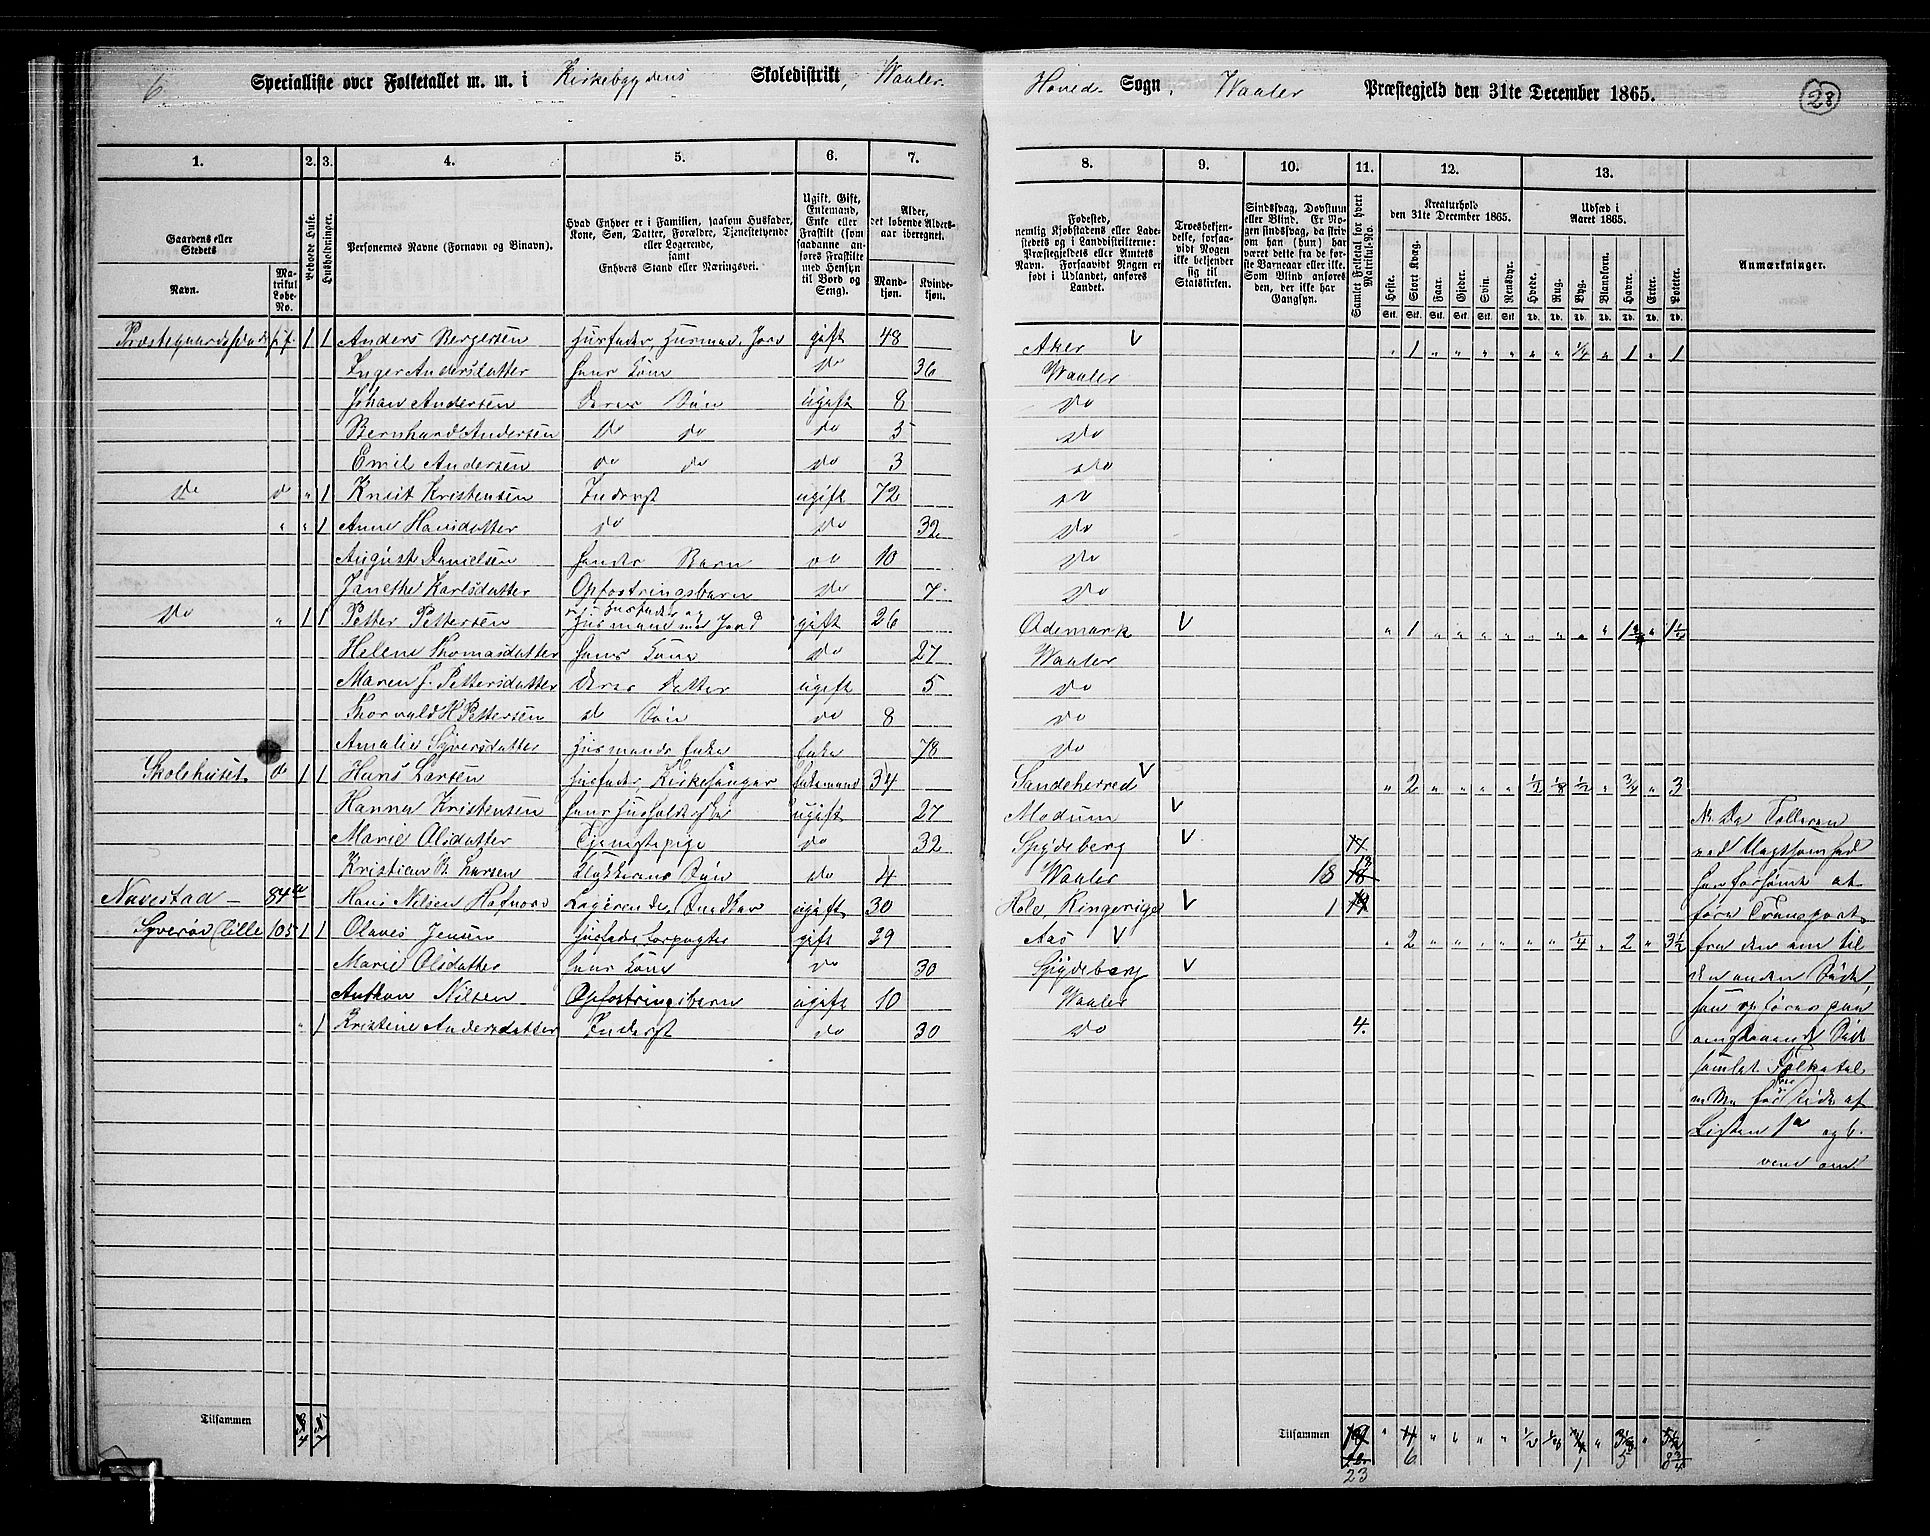 6 Specialliste over Folketallet m. m. i Kirkebygdens Skoledistrikt, Waaler Hoved Sogn, Waaler Præstegjeld den 31te December 1865. 28
1. 2. 3. 4. 5. 6. 7. 8. 9. 10. 11. 12. 13.
Gaardens eller Stedets
Navn.
Matrikul Løbe-No.
Beboede Huse.
Husholdninger.
Personernes Navne (Fornavn og Binavn).
Hvad Enhver er i Familien, saasom Husfader, Kone, Søn, Datter, Forældre, Tjenestetyende eller Logerende, samt Enhvers Stand eller Næringsvei.
Ugift, Gift, Enkemand, Enke eller Fraskilt (som saadanne anføres Fraskilte med Hensyn til Bord og Seng).
Alder, det løbende Aldersaar iberegnet.
Mandkjøn. Kvindekjøn.
Fødested, nemlig Kjøbstadens eller Ladestedets og i Landdistrikterne: Præstegjeldets eller Amtets Navn. Forsaavidt Nogen er født i Udlandet, anføres Landet.
Troesbekjendelse, forsaavidt Nogen ikke bekjender sig til Statskirken.
Sindssvag, Døvstum eller Blind. Er Nogen sindssvag, da skriv om han (hun) har været dette fra de første Barneaar eller ikke. Som Blind anføres den, der ikke har Gangsyn.
Samlet Folketal for hvert Matrikul-No.
Kreaturhold den 31te December 1865.
Heste. Stort Kvæg. Faar. Gjeder. Svin. Rensdyr.
Udsæd i Aaret 1865.
Hvede. Rug. Byg. Blandkorn. Havre. Erter. Poteter.
Anmærkninger.
1 1 Anders Bergersen Husfader, Husmd. Jord gift 48 Aker V " 1 " " " " " " 1/4 " 1 " 1
Inger Andersdatter Hans Kone do 36 Waaler
Johan Andersen Deres Søn ugift 8 do
Bernhard Andersen do do do 5 do
Emil Andersen do do do 3 do
do do " 1 Knut Kristensen Inderst ugift 72 do
" " 1 Anne Hansdatter do do 32 do
August Danielsen Hendes Barn do 10 do
Janethe Karlsdatter Opfostringsbarn do 7 do
Do " 1 1 Petter Pettersen Husfader og Husmand med Jord gift 26 Ødemark V " 1 " " " " " " " "
Helene Thomasdatter Hans Kone do 27 Waaler
Maren J. Pettersdatter Deres Datter ugift 5 do
Thorvald H Pettersen do Søn do 8 do
Amalie Syversdatter Husmands Enke Enke 78 do
Skolehuset do 1 1 Hans Larsen Husfader, Kirkesanger Enkemand 34 Sandeherred V " 2 " " " " 1/2 1/8 1/2 " 3/4 " 3
Hanna Kristensen ugift 27 Modum V
Marie Olsdatter Tjenestepige do 32 Spydeberg V
Kristian B. Larsen Klokkerens Søn do 4 Waaler 18
Navestad 84 Hans Nilsen Logerende ugift 30 Hole, Ringerige V 1
Syverød lille 105 1 1 Olaves Jensen Husfader, Forpagter gift 29 Aas V " 2 " " " " " " 1/4 " 2 " 3 1/2
Marie Olsdatter Hans Kone do 30 Spydeberg V
Anthon Nilsen Opfostringsbarn ugift 10 Waaler
" 1 Kristine Andersdatter Inderst do 30 do 4.
N. Da Tælleren
ved Uagtsomhed
har forsømt at
føre Transport
fra den ene til
den anden Side,
samlet Folketal
Listen 1a og 6.
vend om
Tilsammen 4 7 Tilsammen 23 " 6 " " " " 1/2 1/8 1 " 5 " 8 3/4